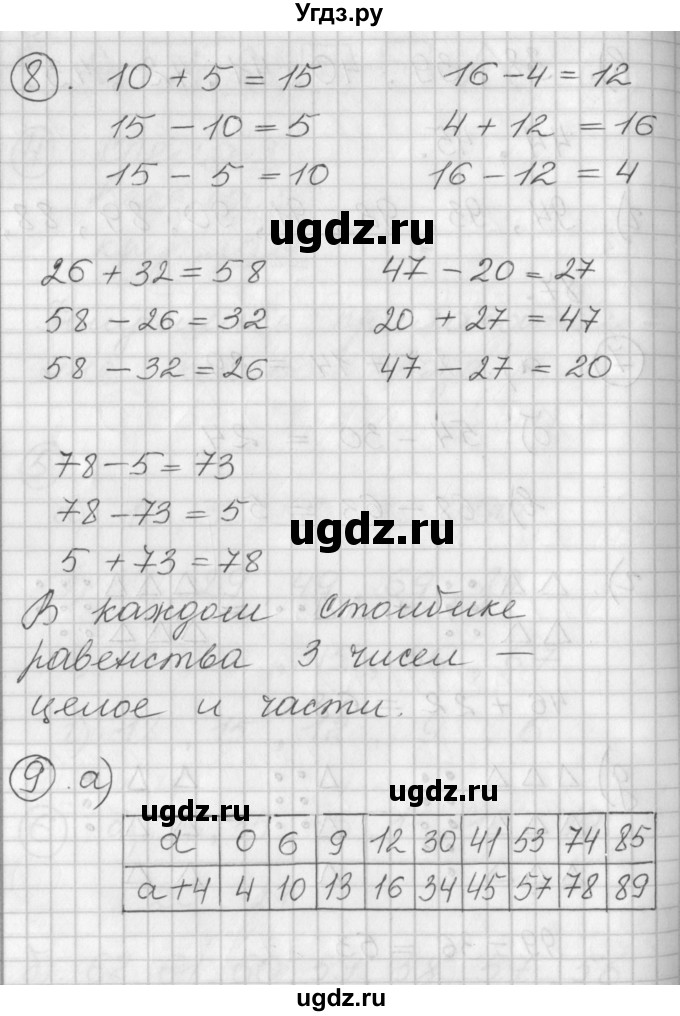 Угдз.ру
8. 10 + 5 = 15 16 - 4 = 12
15 - 10 = 5 4 + 12 = 16
15 - 5 = 10 16 - 12 = 4
ugdz.ru
26 + 32 = 58 47 - 20 = 27
58 - 26 = 32 20 + 27 = 47
58 - 32 = 26 47 - 27 = 20
78 - 5 = 73
78 - 73 = 5
ugdz.ru
5 + 73 = 78
В каждом столбике
равенства 3 чисел —
целое и части.
9. а)
ugdz.ru ugdz.ru
a 0 6 9 12 30 41 53 74 85
a+4 4 10 13 16 34 45 57 78 89
ugdz.ru